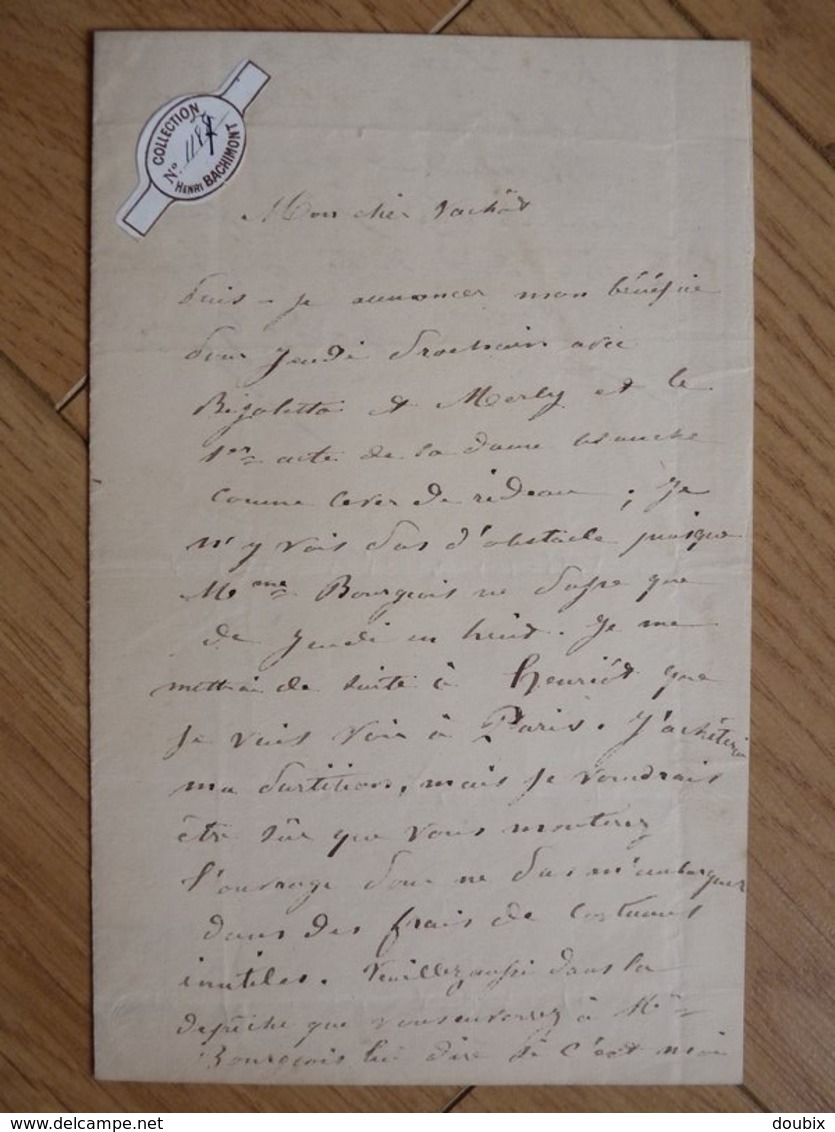 COLLECTION
No. 1187
HENRI BACHIMONT
Mon cher Vachot
Puis-je annoncer mon bénéfice
pour Jeudi prochain avec
Rigoletto et Merly et le
1er acte de la dame blanche
comme lever de rideau ; Je
n'y vois pas d'obstacle puisque
Mme Bourgeois ne passe que
de Jeudi en huit. Je me
mettrai de suite à Henriot que
je vais voir à Paris. J'achéterai
ma partition, mais je voudrais
être sûr que vous monterez
l'ouvrage pour ne pas m'embarquer
dans des frais de costumes
inutiles. Veuillez aussi dans la
depêche que vous enverrez à Mme
Bourgeois lui dire si c'est moi
delcampe.net
doubix